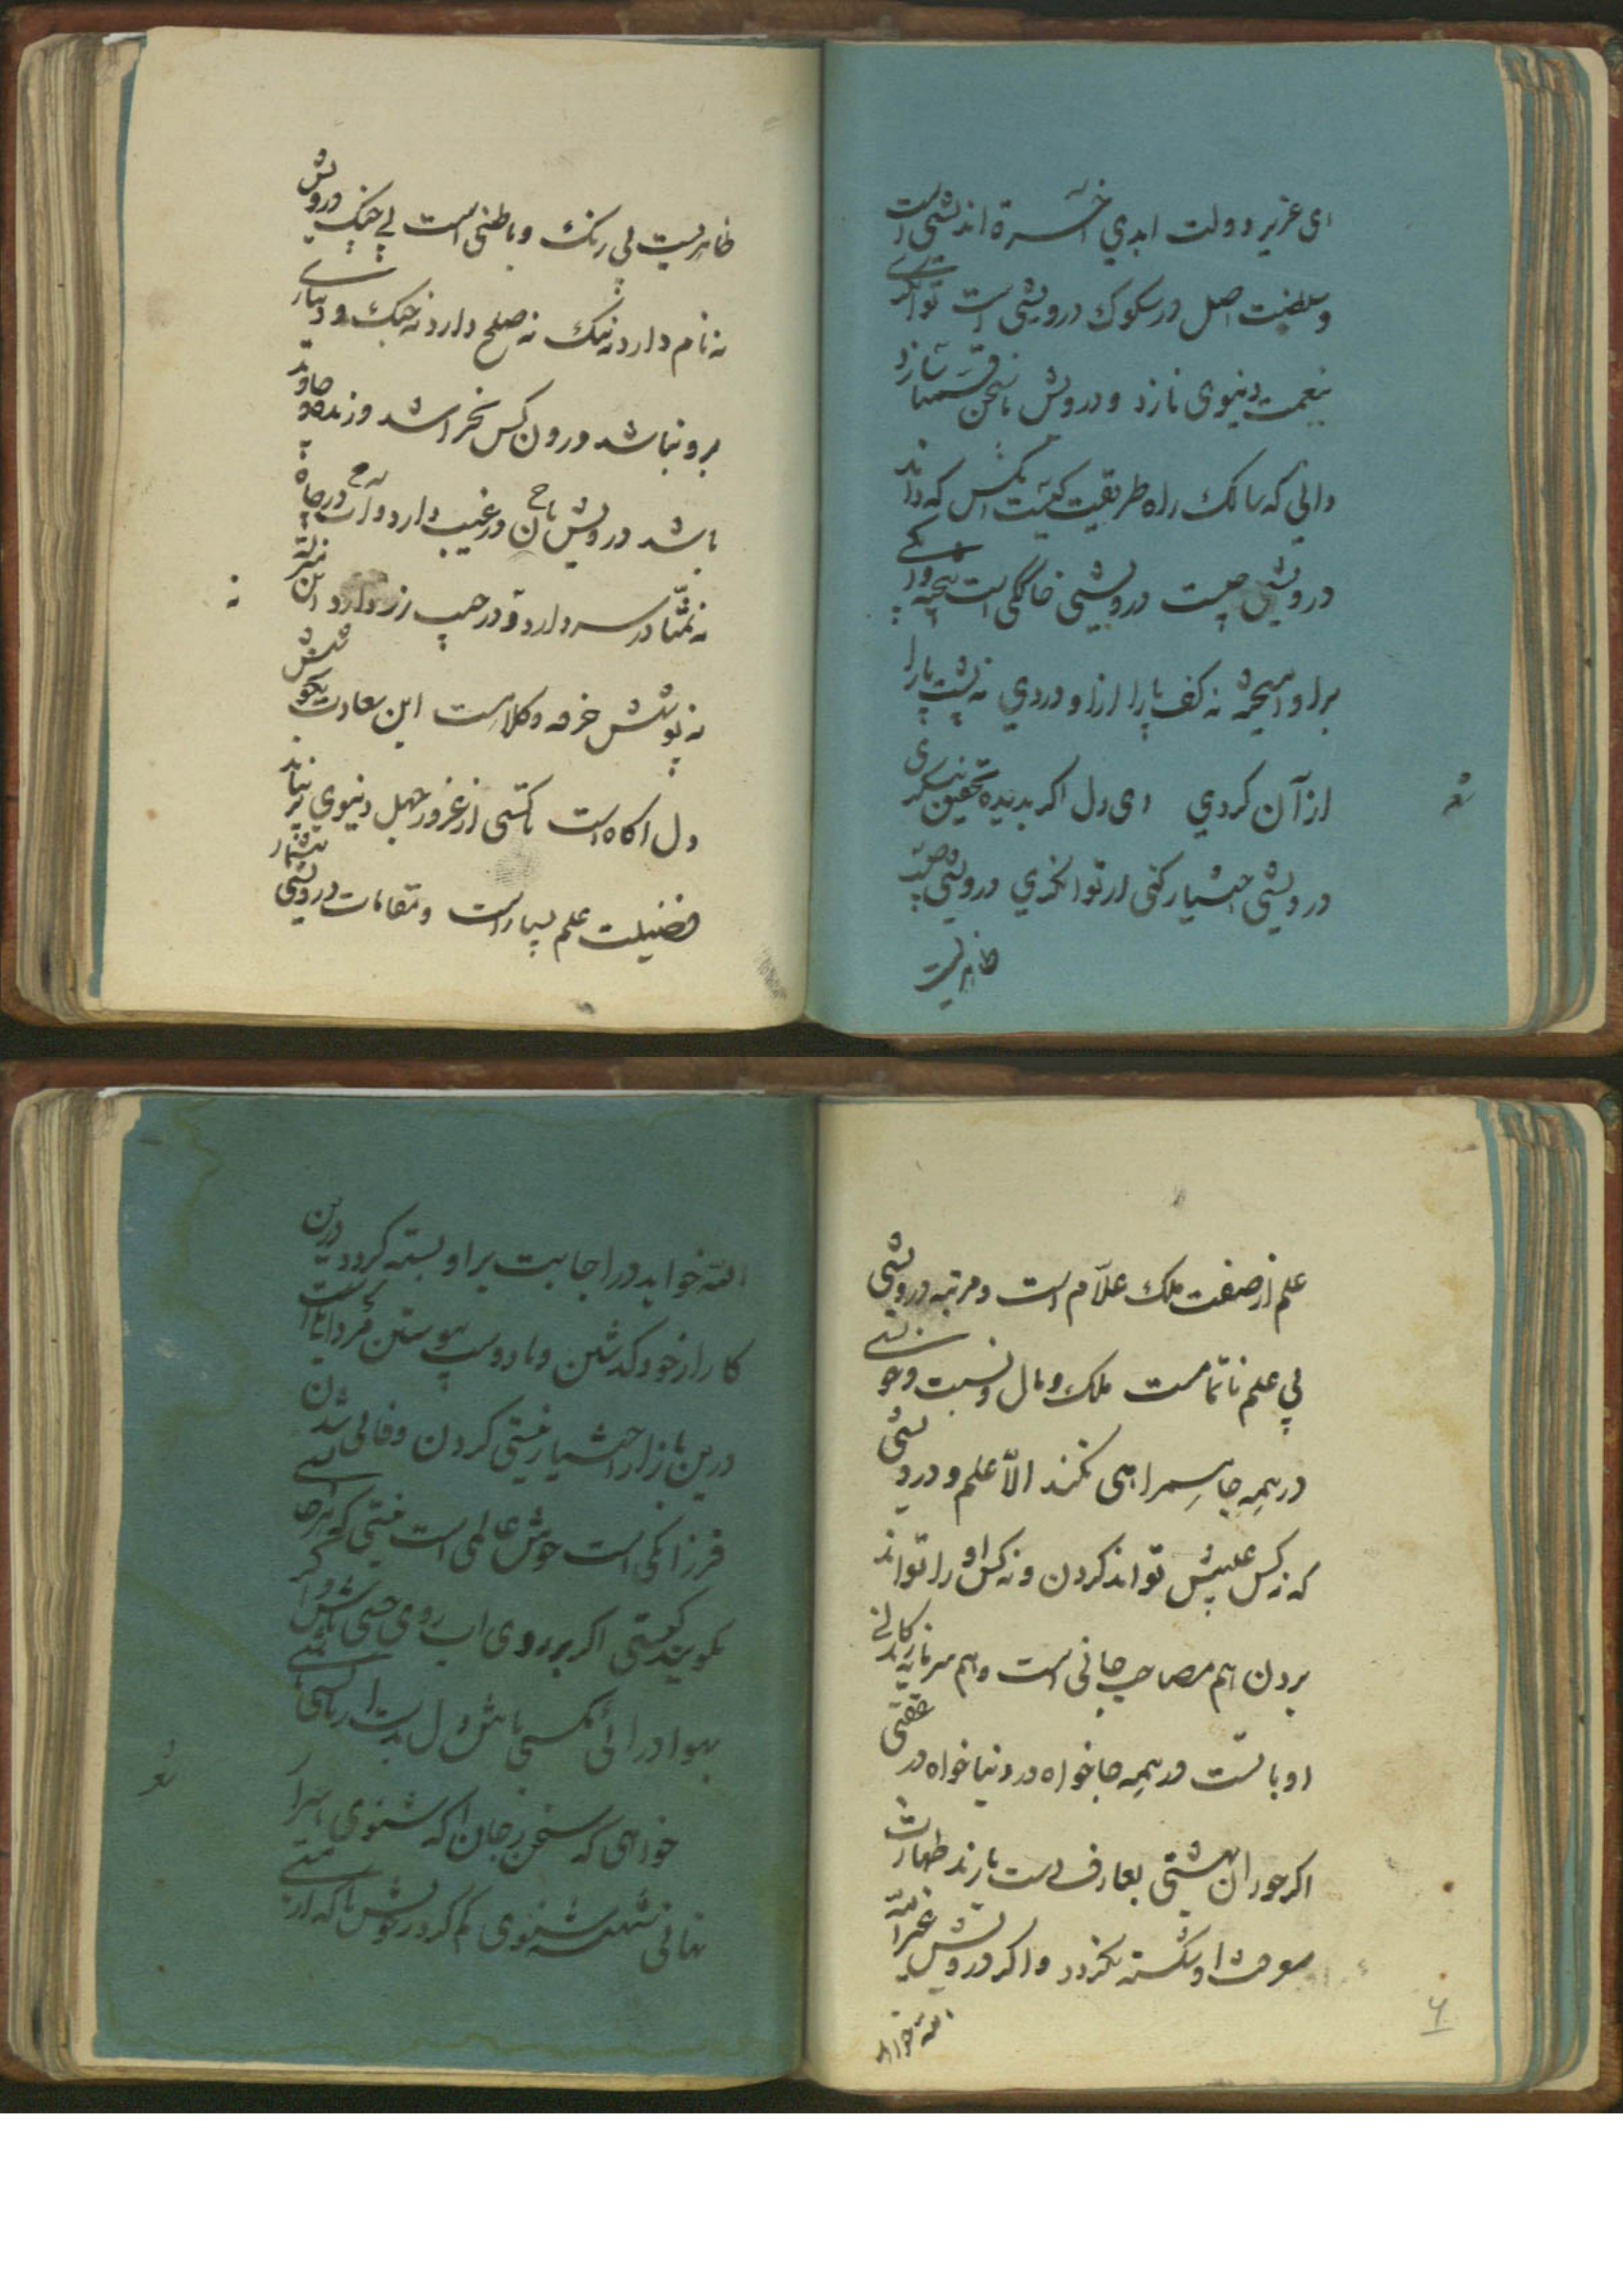 ای عزیز دولت ابدی آخر اندیشی است
و سلطنت اصل در سکوک درویشی است توانگری
بنعمت دنیوی نازد و درویش بانحن قسمنا سازد
دانی که سالک راه طریقت کیست آنکس که داند
درویشی چیست درویشی خاکی است بیخته و آبکی
بر او ریخته نه کف پا را ازو دردی نه پشت پا را
از آن گردی ای دل اگر بدیده تحقیق بنگری
درویشی اختیار کنی از توانگری درویشی چیست
ظاهریست
شعر
ظاهریست بی رنک و باطنی است بی جنک درویش
نه نام دارد نه ننک نه صلح دارد نه جنک و دیناری
برو نباشد درون کس نخراشد و زنده جاوید
باشد درویش نان در غیب دارد و آب در چاه
نه تمنا در سر دارد و در جیب زر دارد این منزلت
نه پوشش خرقه و کلاهست این سعادت
دل آکاه است تا کسی از غرور جهل دنیوی بر نیاید
فضیلت علم بسیار است و مقامات درویشی بیشمار
علم از صفت ملک علام است و مرتبه درویشی
بی علم ناتمامست ملک و مال و نسبت و خویشی
در همه جا همراهی نکنند الا علم و درویشی
که نه کس غلبیش تواند کردن و نه کس او را تواند
بردن هم مصاحب جانی است و هم سرمایه زندکانی
او با تست در همه جا خواه در دنیا خواه در عقبی
اکر حوران بهشتی بعارف دست یازند طهارت
معرفت او شکسته نکردد و اکر درویش غیر الله
الله خواهد
۶
الله خواهد در اجابت بر او بسته کردد درین
کار از خود کذشتن و با دوست پیوستن مردانکی است
درین بازار اختیار نیستی کردن و فانی شدن
فرزانکی است خوش عالمی است نیستی که هر جا
کویند کیستی اکر بر روی آب روی خسی باشی و اکر
بهوا در آئی مکسی باشی دل بدست آر تا کسی باشی
خواهی که سخن ز جان آکه شنوی اسرار
نهانی شهنشه شنوی کم کرد ز خویش تا که از هستی
شعر